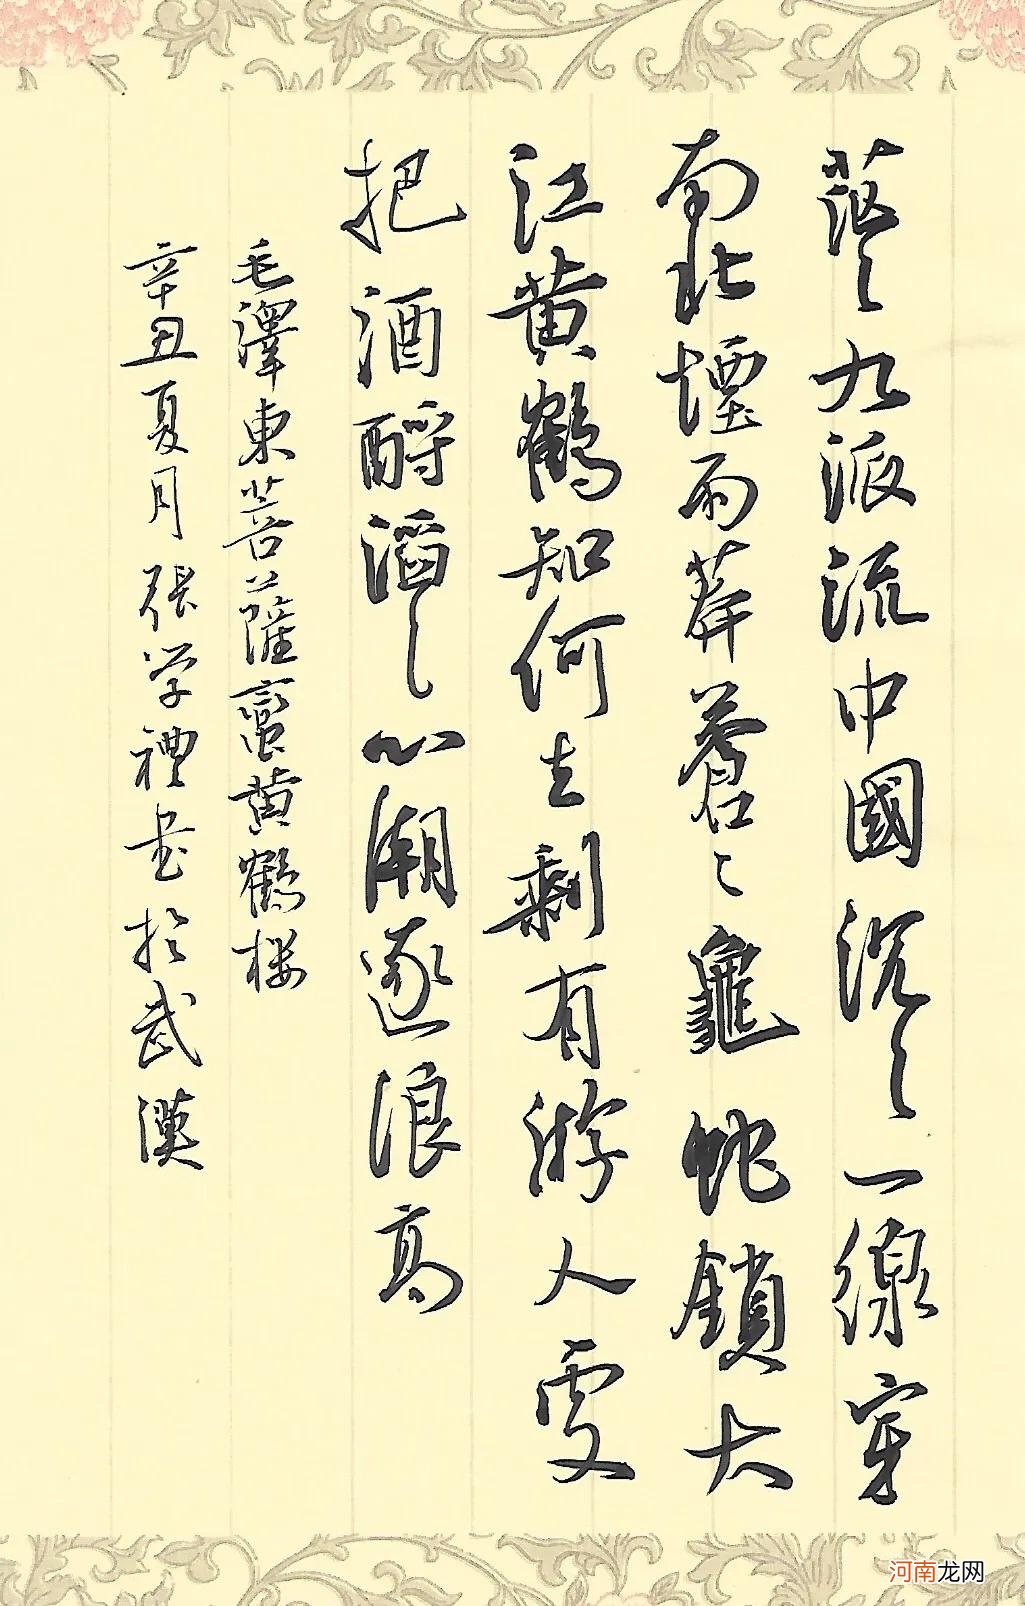 茫々九派流中國沉々一線穿
南北煙雨莽蒼々龜蛇鎖大
江黄鶴知何去剩有游人處
把酒酹滔々心潮逐浪高
毛澤東菩薩蠻黄鶴楼
辛丑夏月張学禮書於武漢
河南龙网